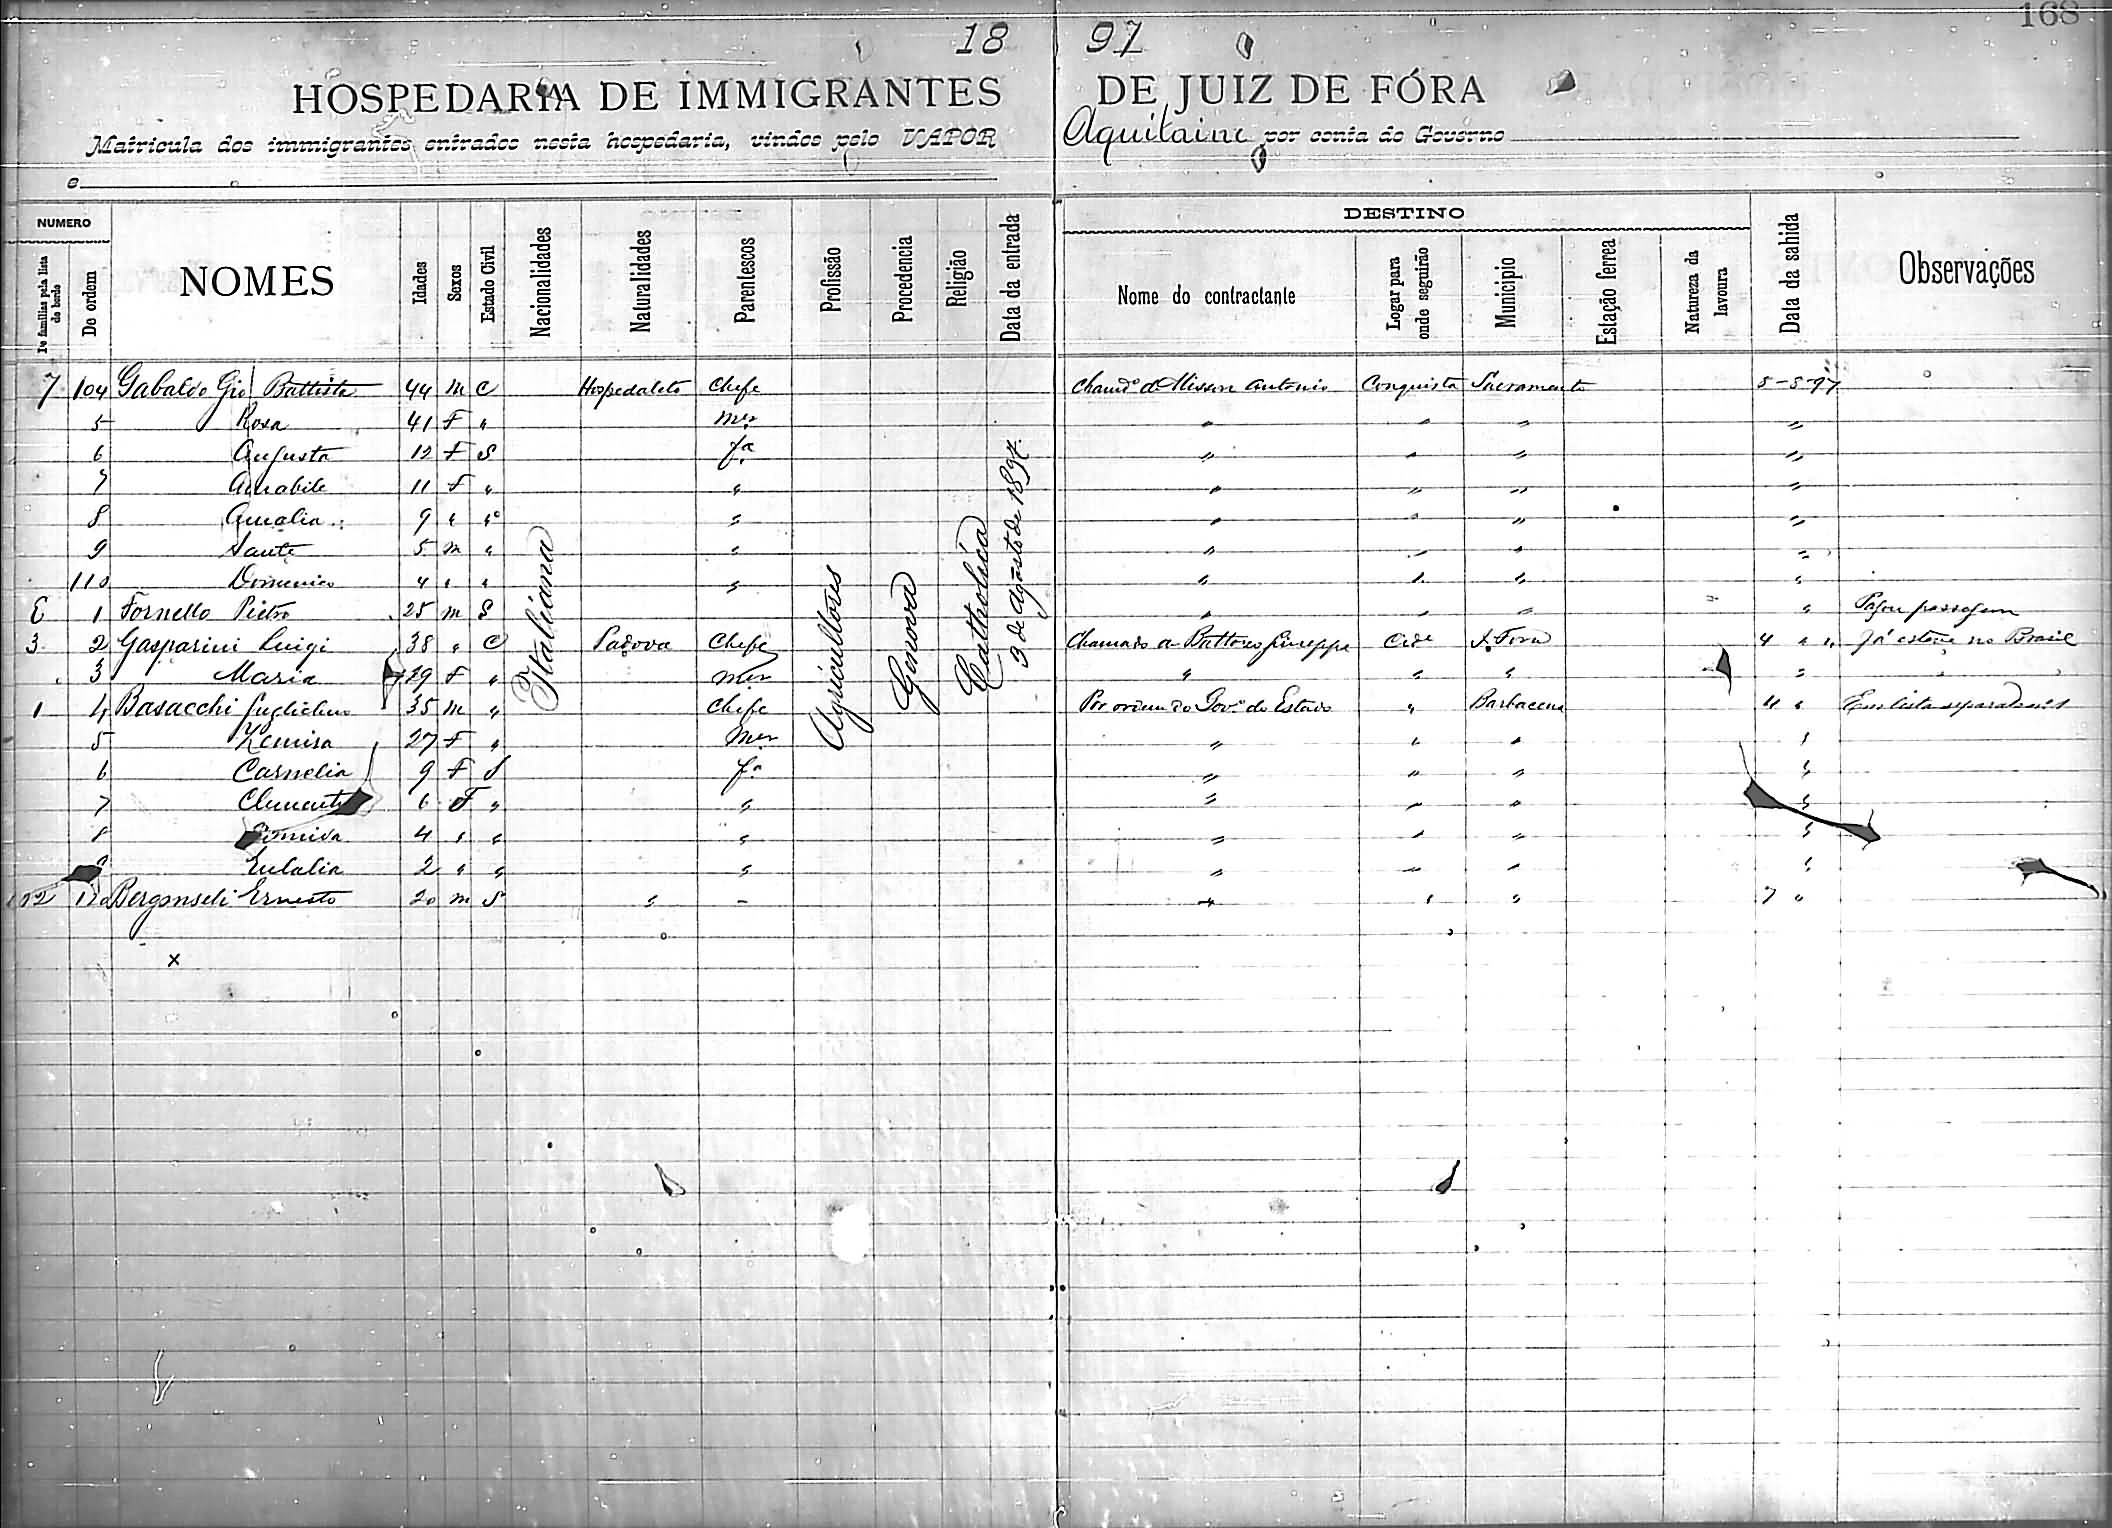 168
18 97
HOSPEDARIA DE IMMIGRANTES DE JUIZ DE FÓRA
Matricula dos immigrantes entrados nesta hospedaria, vindos pelo VAPOR Aquitaine por conta do Governo
e
NUMERO DESTINO
De familias pela lista de bordo De ordem NOMES Idades Sexos Estado Civil Nacionalidades Naturalidades Parentescos Profissão Procedencia Religião Data da entrada Nome do contractante Logar para onde seguirão Municipio Estação ferrea Natureza da lavoura Data da sahida Observações
7 104 Gabaldo Gio Battista 44 M C Hospedaleto Chefe Antonio Conquista Sacramento 5-8-97
5 Rosa 41 F " Mer " " " "
6 Augusta 12 F S fa " " " "
7 Amabile 11 F " " " " " "
8 Amalia 9 " " " " " " "
9 Sante 5 M " " " " " "
110 Domenico 4 " " " " " " "
E 1 Fornello Pietro 25 M S " " " Pagou passagem
3 2 Gasparini Luigi 38 " C Padova Chefe Chamado a Battores Giuseppe Cide J. Fora 4 " " Já esteve no Brasil
3 Maria 29 F " Mer " " " " "
1 4 Basacchi Guglielmo 35 M " Chefe Por ordem do Gov.º do Estado " Barbacena 4 " Em lista separada
5 27 F " Mer " " " "
6 Carnelia 9 F S fa " " " "
7 6 F " " " " " "
8 4 " " " " " " "
Eulalia 2 " " " " " " "
122 120 Ernesto 20 M S " - " " " 7 "
x
Italiana
Agricultores
Genova
Catholica
3 de Agosto de 1897.